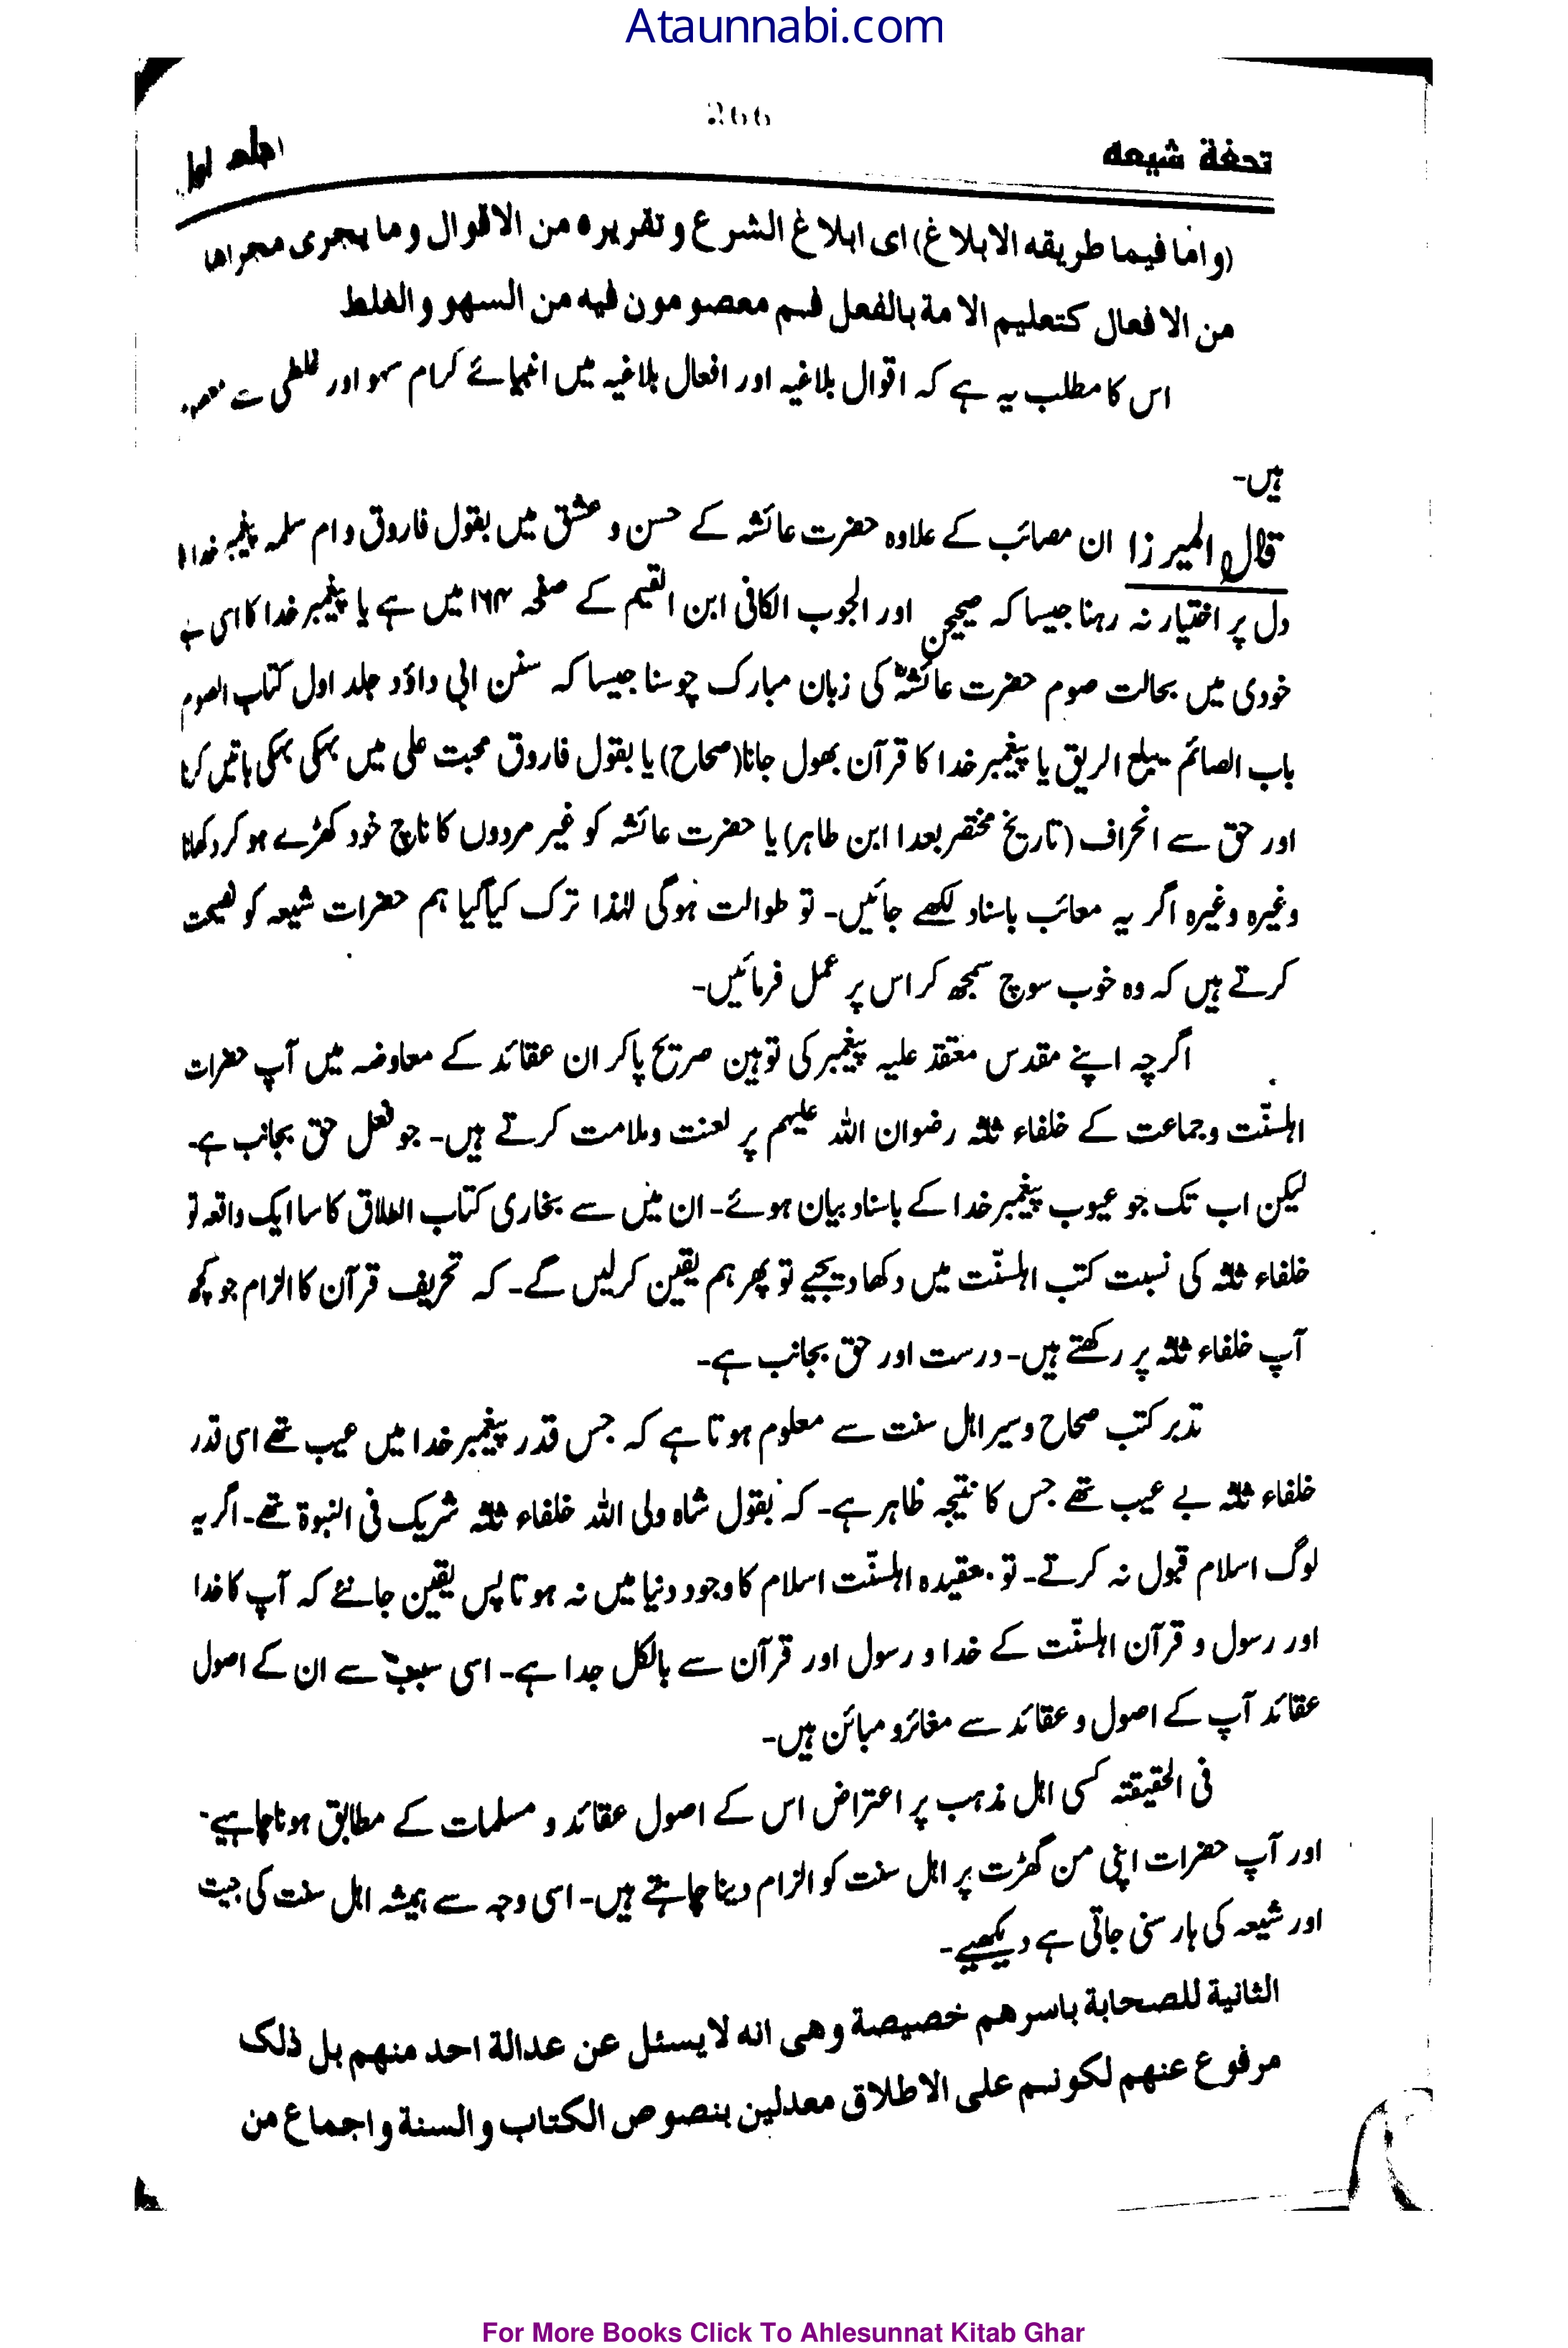 Ataunnabi.com
266
تحفة شیعه
جلد اول
(واما فیما طریقه الابلاغ) ای ابلاغ الشرع و تقریره من الاقوال وما یجری مجراها
من الافعال کتعلیم الامة بالفعل فهم معصومون فیه من السهو والغلط
اس کا مطلب یہ ہے کہ اقوال بلاغیہ اور افعال بلاغیہ میں انبیائے کرام سہو اور غلطی سے
ہیں۔
قال المیرزا ان مصائب کے علاوہ حضرت عائشہ کے حسن و عشق میں بقول فاروق و ام سلمہ پیغمبر خدا
دل پر اختیار نہ رہنا جیسا کہ صحیحین اور الجوب الکافی ابن القیم کے صفحہ ۱۶۴ میں ہے یا پیغمبر خدا کا اسی
خودی میں بحالت صوم حضرت عائشہؓ کی زبان مبارک چوسنا جیسا کہ سنن ابی داؤد جلد اول کتاب الصوم
باب الصائم یبلع الریق یا پیغمبر خدا کا قرآن بھول جانا (صحاح) یا بقول فاروق محبت علی میں بہکی بہکی باتیں کرنا
اور حق سے انحراف (تاریخ مختصر بعدا ابن طاہر) یا حضرت عائشہ کو غیر مردوں کا ناچ خود کھڑے ہو کر دکھانا
وغیرہ وغیرہ اگر یہ معائب باسناد لکھے جائیں۔ تو طوالت ہوگی لہٰذا ترک کیا گیا ہم حضرات شیعہ کو نصیحت
کرتے ہیں کہ وہ خوب سوچ سمجھ کر اس پر عمل فرمائیں۔
اگرچہ اپنے مقدس معتقد علیہ پیغمبر کی توہین صریح پا کر ان عقائد کے معاوضہ میں آپ حضرات
اہلسنّت و جماعت کے خلفاء ثلٰثہ رضوان اللہ علیہم پر لعنت و ملامت کرتے ہیں۔ جو فعل حق بجانب ہے۔
لیکن اب تک جو عیوب پیغمبر خدا کے باسناد بیان ہوئے۔ ان میں سے بخاری کتاب الطلاق کا سا ایک واقعہ تو
خلفاء ثلٰثہ کی نسبت کتب اہلسنّت میں دکھا دیجیے تو پھر ہم یقین کرلیں گے۔ کہ تحریف قرآن کا الزام جو کچھ
آپ خلفاء ثلٰثہ پر رکھتے ہیں۔ درست اور حق بجانب ہے۔
تدبر کتب صحاح و سیر اہل سنت سے معلوم ہوتا ہے کہ جس قدر پیغمبر خدا میں عیب تھے اسی قدر
خلفاء ثلٰثہ بے عیب تھے جس کا نتیجہ ظاہر ہے۔ کہ بقول شاہ ولی اللہ خلفاء ثلٰثہ شریک فی النبوۃ تھے۔ اگر یہ
لوگ اسلام قبول نہ کرتے۔ تو بعقیدہ اہلسنّت اسلام کا وجود دنیا میں نہ ہوتا پس یقین جانئے کہ آپ کا خدا
اور رسول و قرآن اہلسنّت کے خدا و رسول اور قرآن سے بالکل جدا ہے۔ اسی سبب سے ان کے اصول
عقائد آپ کے اصول و عقائد سے مغائر و مبائن ہیں۔
فی الحقیقتہ کسی اہل مذہب پر اعتراض اس کے اصول عقائد و مسلمات کے مطابق ہونا چاہیے۔
اور آپ حضرات اپنی من گھڑت پر اہل سنت کو الزام دینا چاہتے ہیں۔ اسی وجہ سے ہمیشہ اہل سنت کی جیت
اور شیعہ کی ہار سنی جاتی ہے دیکھیے۔
الثانیة للصحابة باسرهم خصیصة وهی انه لا یسئل عن عدالة احد منهم بل ذلک
مرفوع عنهم لکونهم علی الاطلاق معدلین بنصوص الکتاب والسنة واجماع من
For More Books Click To Ahlesunnat Kitab Ghar